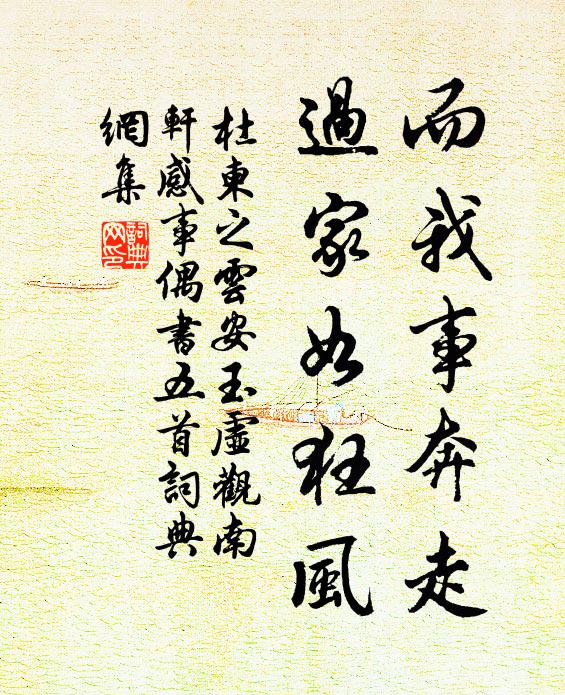 而我事奔走
過家如狂風
杜東之雲安玉虛觀南
軒感事偶書五首詞典
網集
詞典
网印